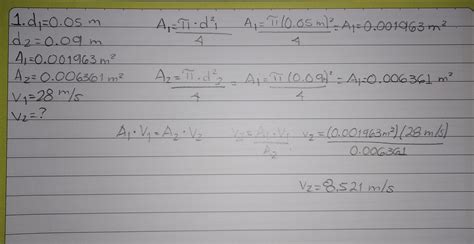 1. d₁=0.05 m
d₂=0.09 m
A₁=0.001963 m²
A₂=0.006361 m²
V₁=28 m/s
V₂=?
A₁=π·d²₁/4 A₁=π(0.05 m)²/4=A₁=0.001963 m²
A₂=π·d²₂/4=A₁=π(0.09)²/4=A₁=0.006361 m²
A₁·V₁=A₂·V₂ V₂=A₁·V₁/A₂ V₂=(0.001963 m²)(28 m/s)/0.006361
V₂=8.521 m/s